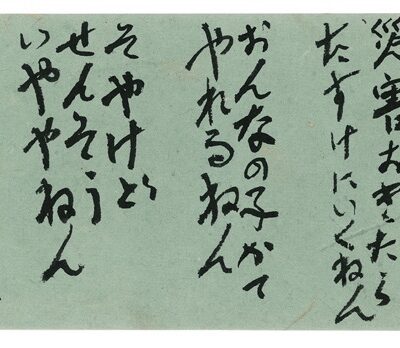 災害おきたら
たすけにいくねん
おんなの子かて
やれるねん
そやけど
せんそう
いややねん